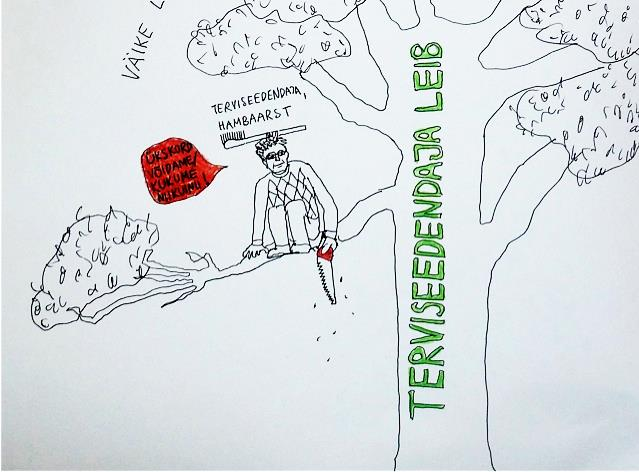 VÄIKE L
TERVISEEDENDAJA,
HAMBAARST
ÜKSKORD
VÕIDAME/
KUKUME
NIIKUINII!
TERVISEEDENDAJA LEIB